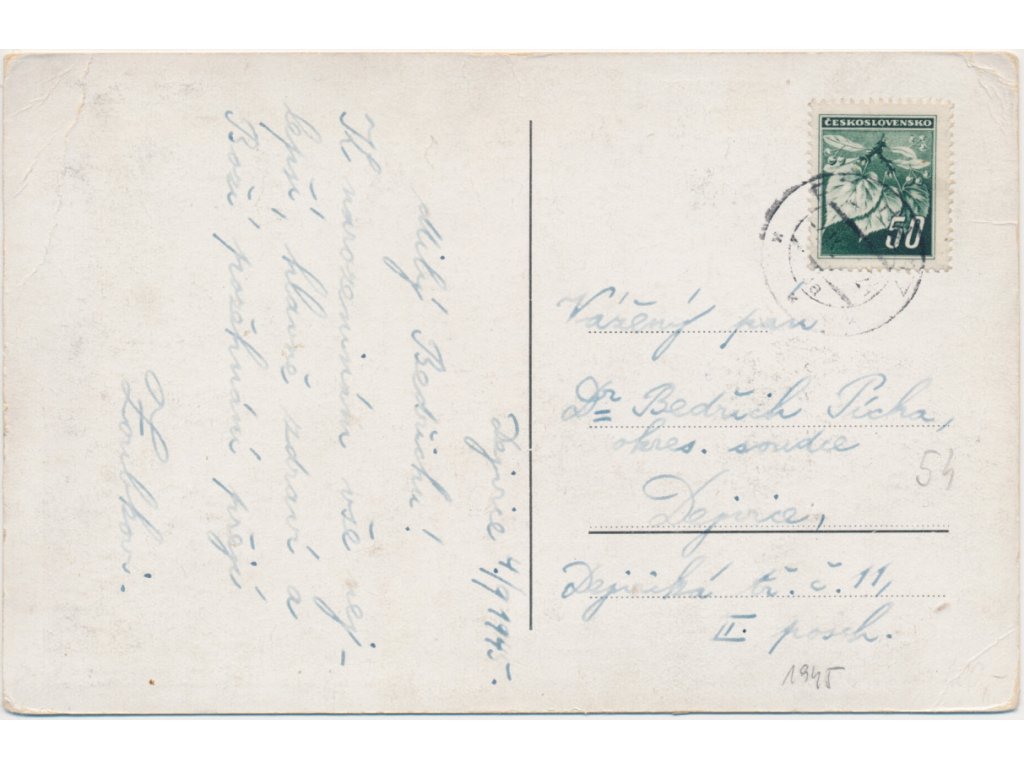 Dejvice 4/9 1945.
Milý Bedřichu!
K narozeninám vše nej-
lepší, hlavně zdraví a
Boží požehnání přejí
Zoubkovi.
ČESKOSLOVENSKO
50
Vážený pan
Dr Bedřich Pícha,
okres. soudce
Dejvice,
Dejvická tř. č. 11,
II. posch.
54
1945